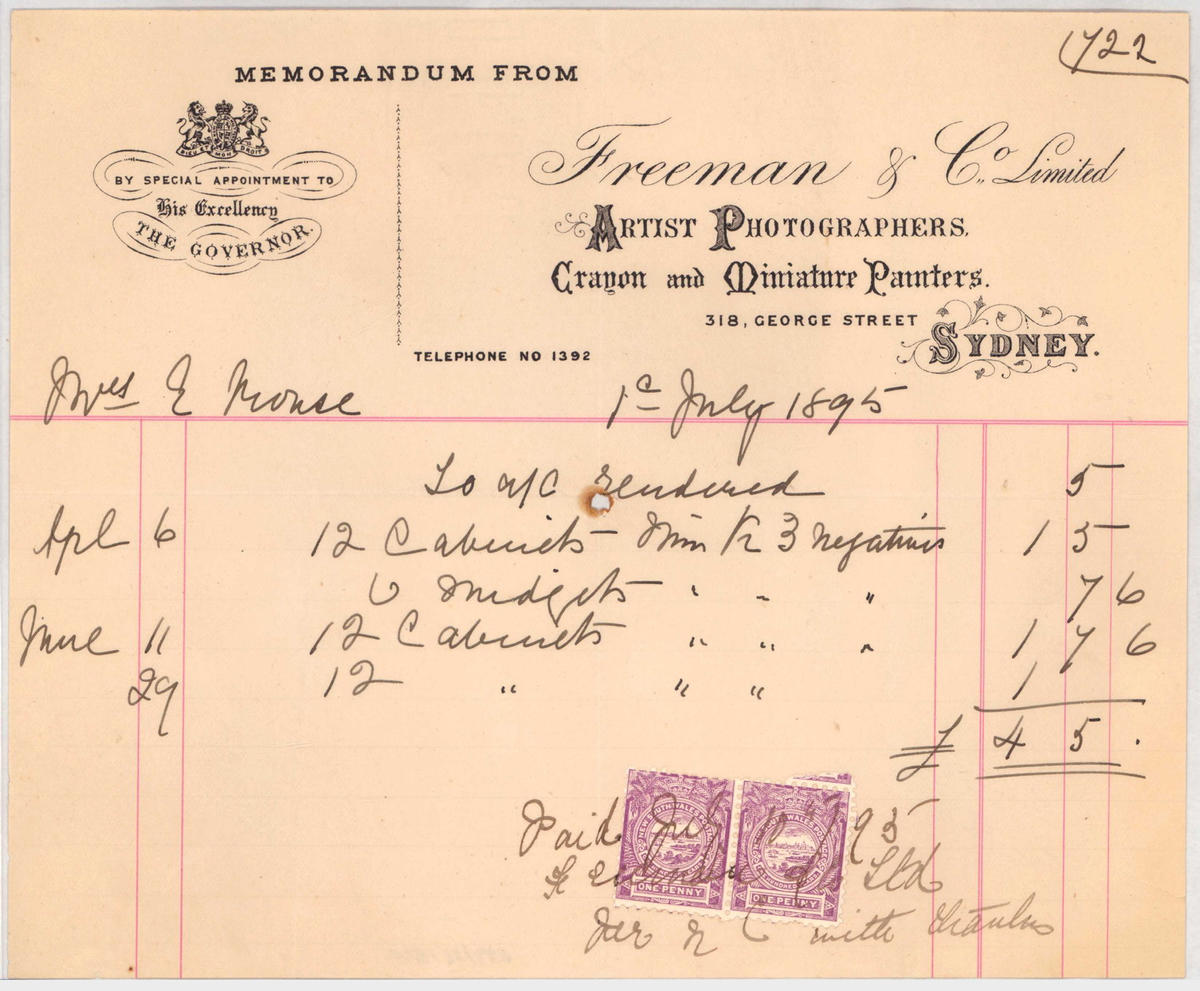 1722
MEMORANDUM FROM
DIEU ET MON DROIT
BY SPECIAL APPOINTMENT TO
His Excellency
THE GOVERNOR.
Freeman & Co. Limited
ARTIST PHOTOGRAPHERS.
Crayon and Miniature Painters.
318, GEORGE STREET
SYDNEY.
TELEPHONE NO 1392
E Rouse 1st July 1895
To a/c rendered 5
Apl 6 12 Cabinets 3 negatives 1 5
6 Midgets " " " 7 6
June 11 12 Cabinets " " " 1 7 6
29 12 " " " 1
£ 4 5 .
Paid July 95
NEW SOUTH WALES POSTAGE
ONE PENNY
NEW SOUTH WALES POSTAGE
ONE PENNY
Freeman & Co Ltd
Per with thanks